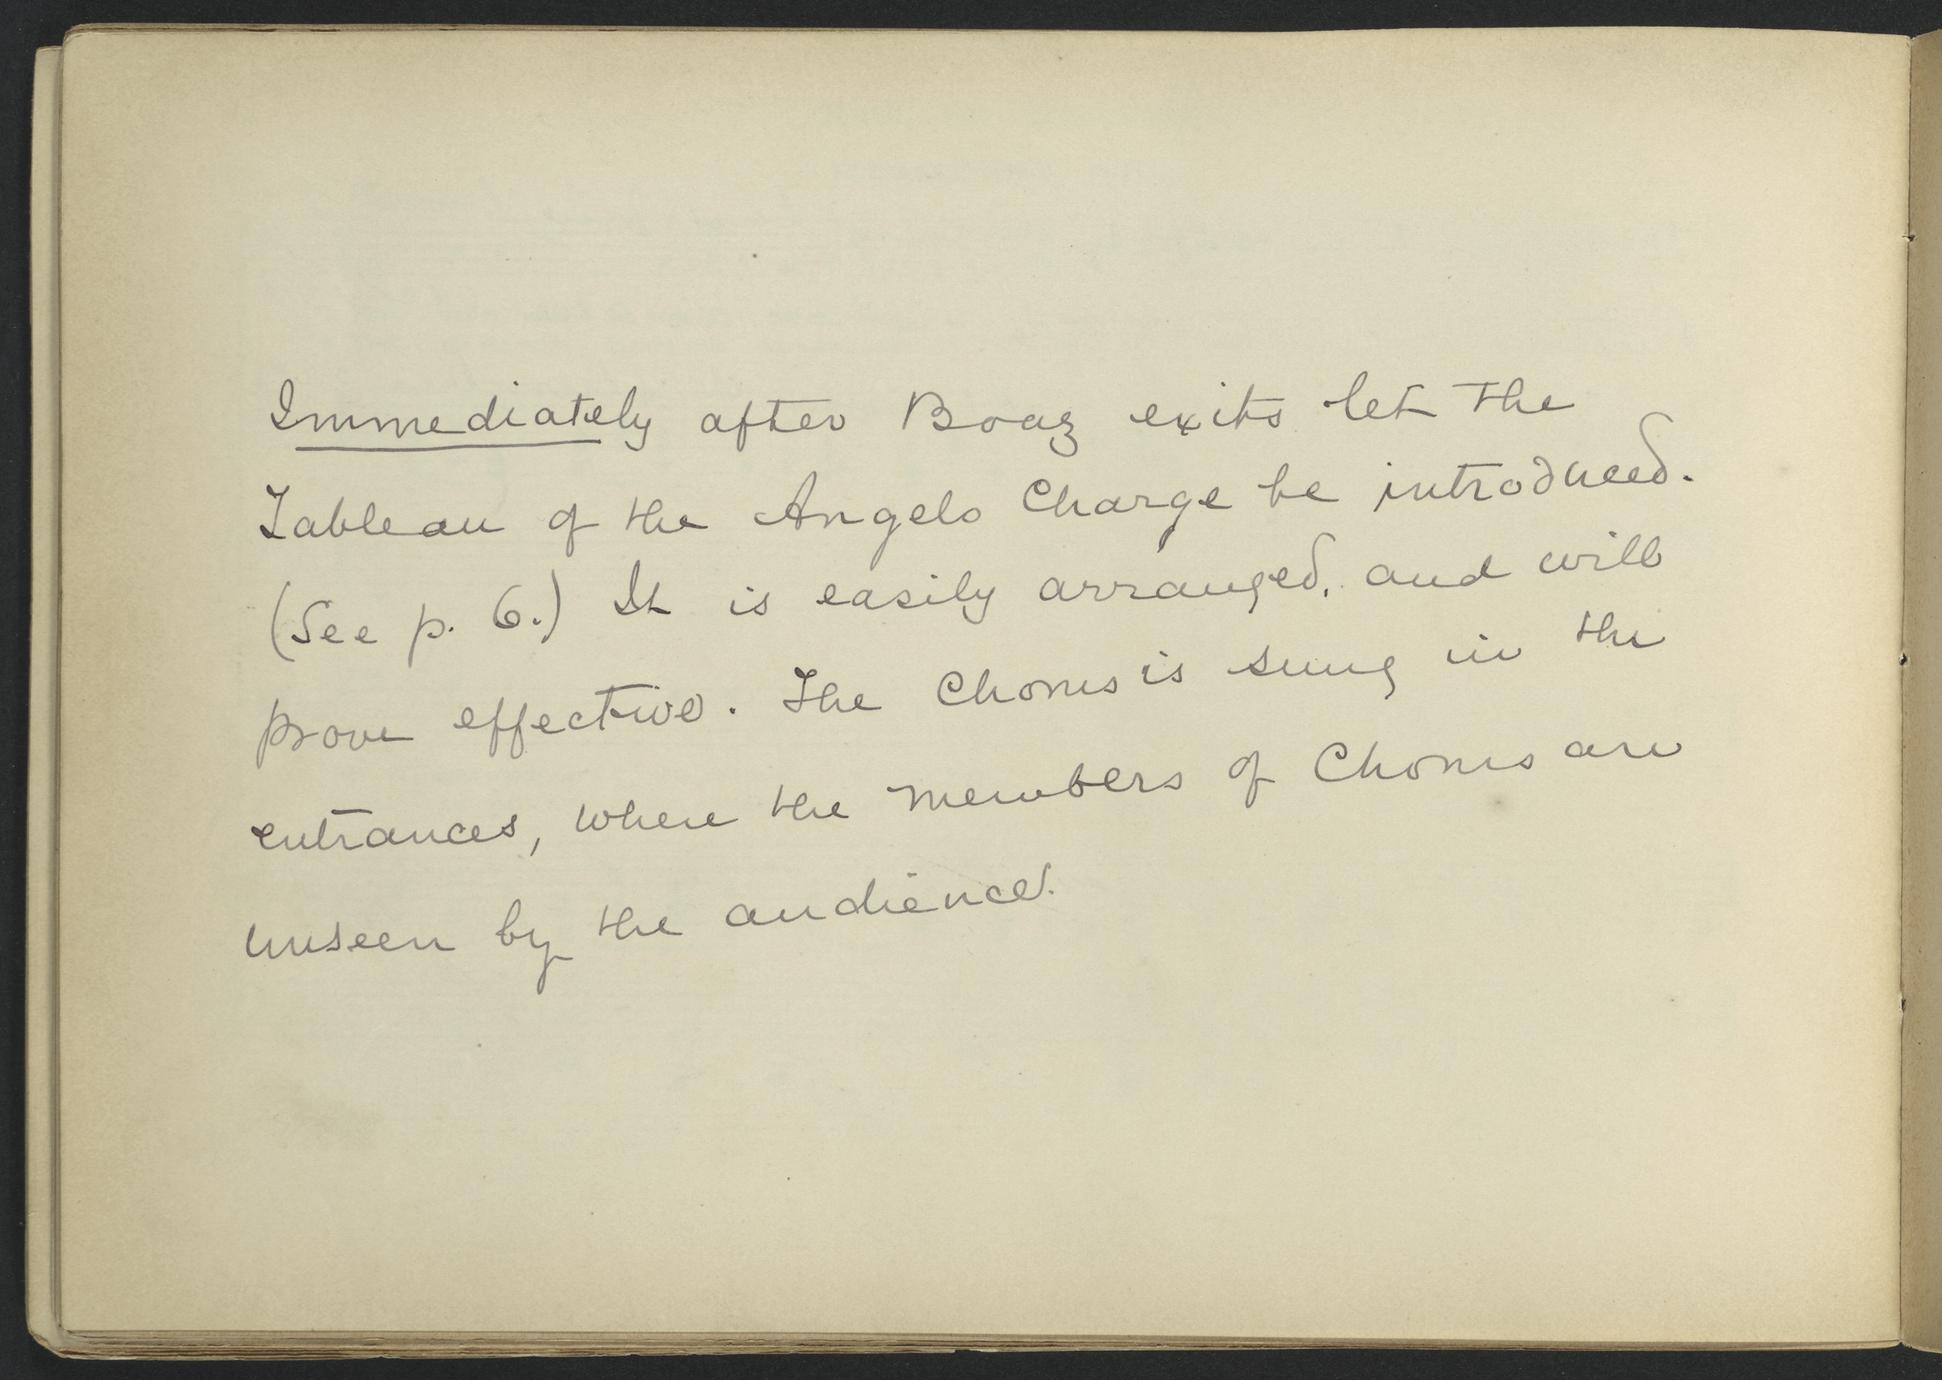 Immediately after Boaz exits let the
Tableau of the Angels Charge be introduced.
(See p. 6.) It is easily arranged, and will
prove effective. The Chorus is sung in the
entrances, where the members of Chorus are
unseen by the audience.